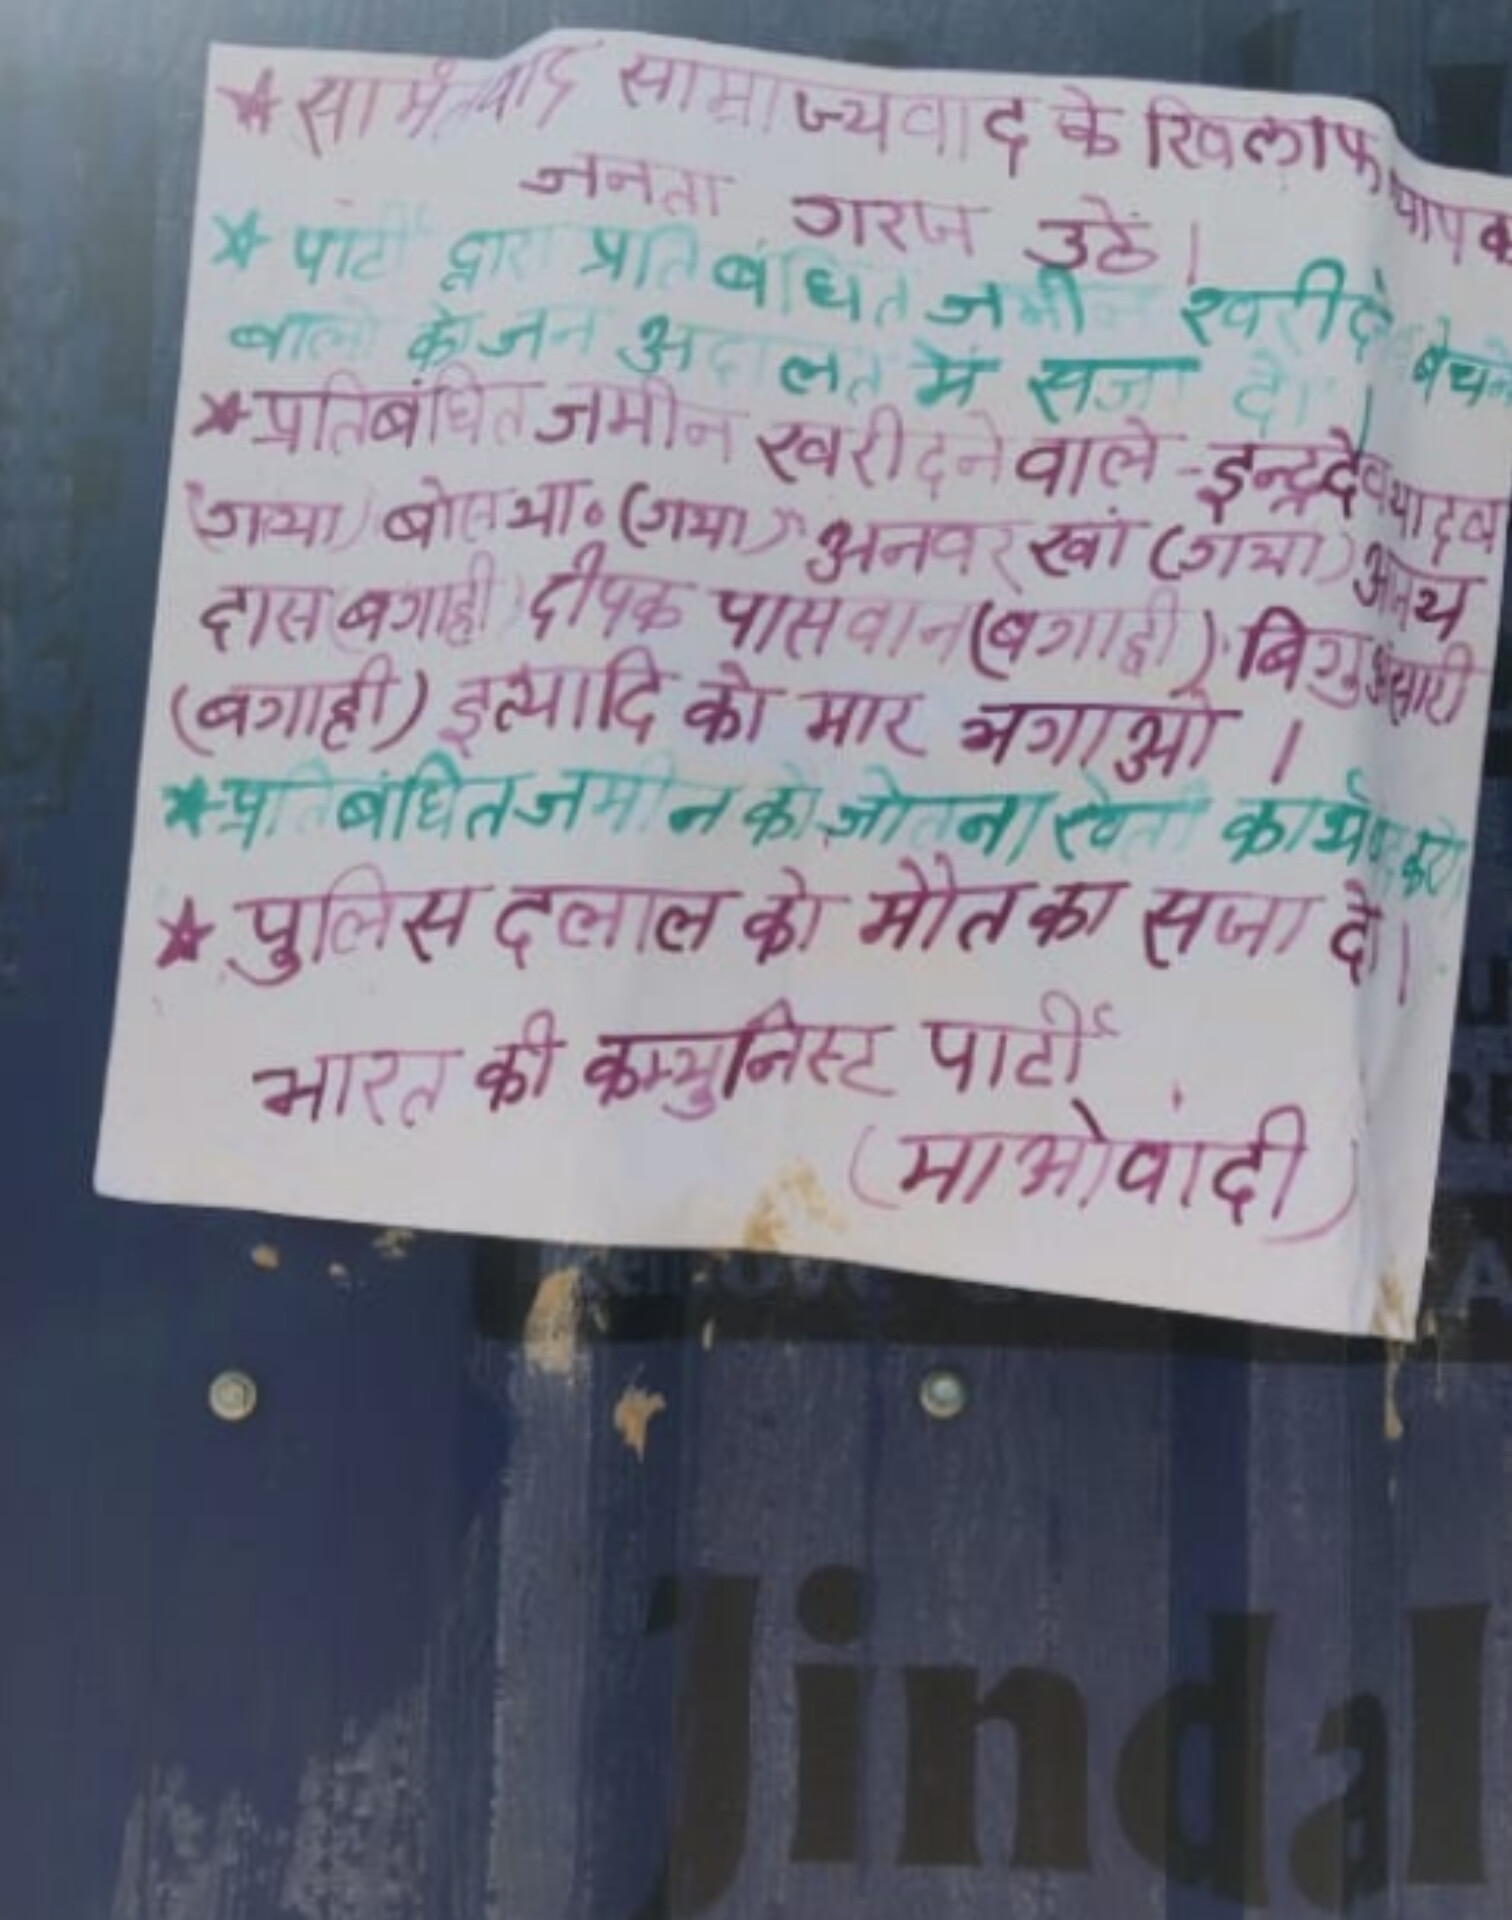 ★ सामंतवाद साम्राज्यवाद के खिलाफ व्यापक
जनता गरज उठें।
★ पार्टी द्वारा प्रतिबंधित जमीन खरीदने बेचने
वालो को जन अदालत में सजा दो।
★ प्रतिबंधित जमीन खरीदने वाले - इन्द्रदेव यादव
(गया) (गया) अनवर खां (गया)
दास (बगाही) दीपक पासवान (बगाही) अंसारी
(बगाही) इत्यादि को मार भगाओ ।
★ प्रतिबंधित जमीन को जोतना खेती कार्य बंद करो
★ पुलिस दलाल को मौत का सजा दो।
भारत की कम्युनिस्ट पार्टी
(माओवांदी)
Jindal